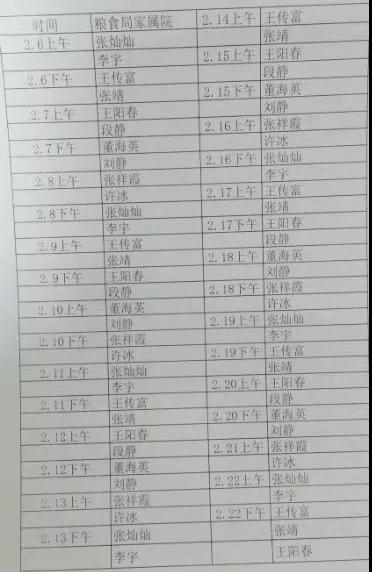 时间 粮食局家属院 2.14上午 王传富
2.6上午 张灿灿 张靖
李宇 2.15上午 王阳春
2.6下午 王传富 段静
张靖 2.15下午 董海英
2.7上午 王阳春 刘静
段静 2.16上午 张祥霞
2.7下午 董海英 许冰
刘静 2.16下午 张灿灿
2.8上午 张祥霞 李宇
许冰 2.17上午 王传富
2.8下午 张灿灿 张靖
李宇 2.17下午 王阳春
2.9上午 王传富 段静
张靖 2.18上午 董海英
2.9下午 王阳春 刘静
段静 2.18下午 张祥霞
2.10上午 董海英 许冰
刘静 2.19上午 张灿灿
2.10下午 张祥霞 李宇
许冰 2.19下午 王传富
2.11上午 张灿灿 张靖
李宇 2.20上午 王阳春
2.11下午 王传富 段静
张靖 2.20下午 董海英
2.12上午 王阳春 刘静
段静 2.21上午 张祥霞
2.12下午 董海英 许冰
刘静 2.22上午 张灿灿
2.13上午 张祥霞 李宇
许冰 2.22下午 王传富
2.13下午 张灿灿 张靖
李宇 王阳春